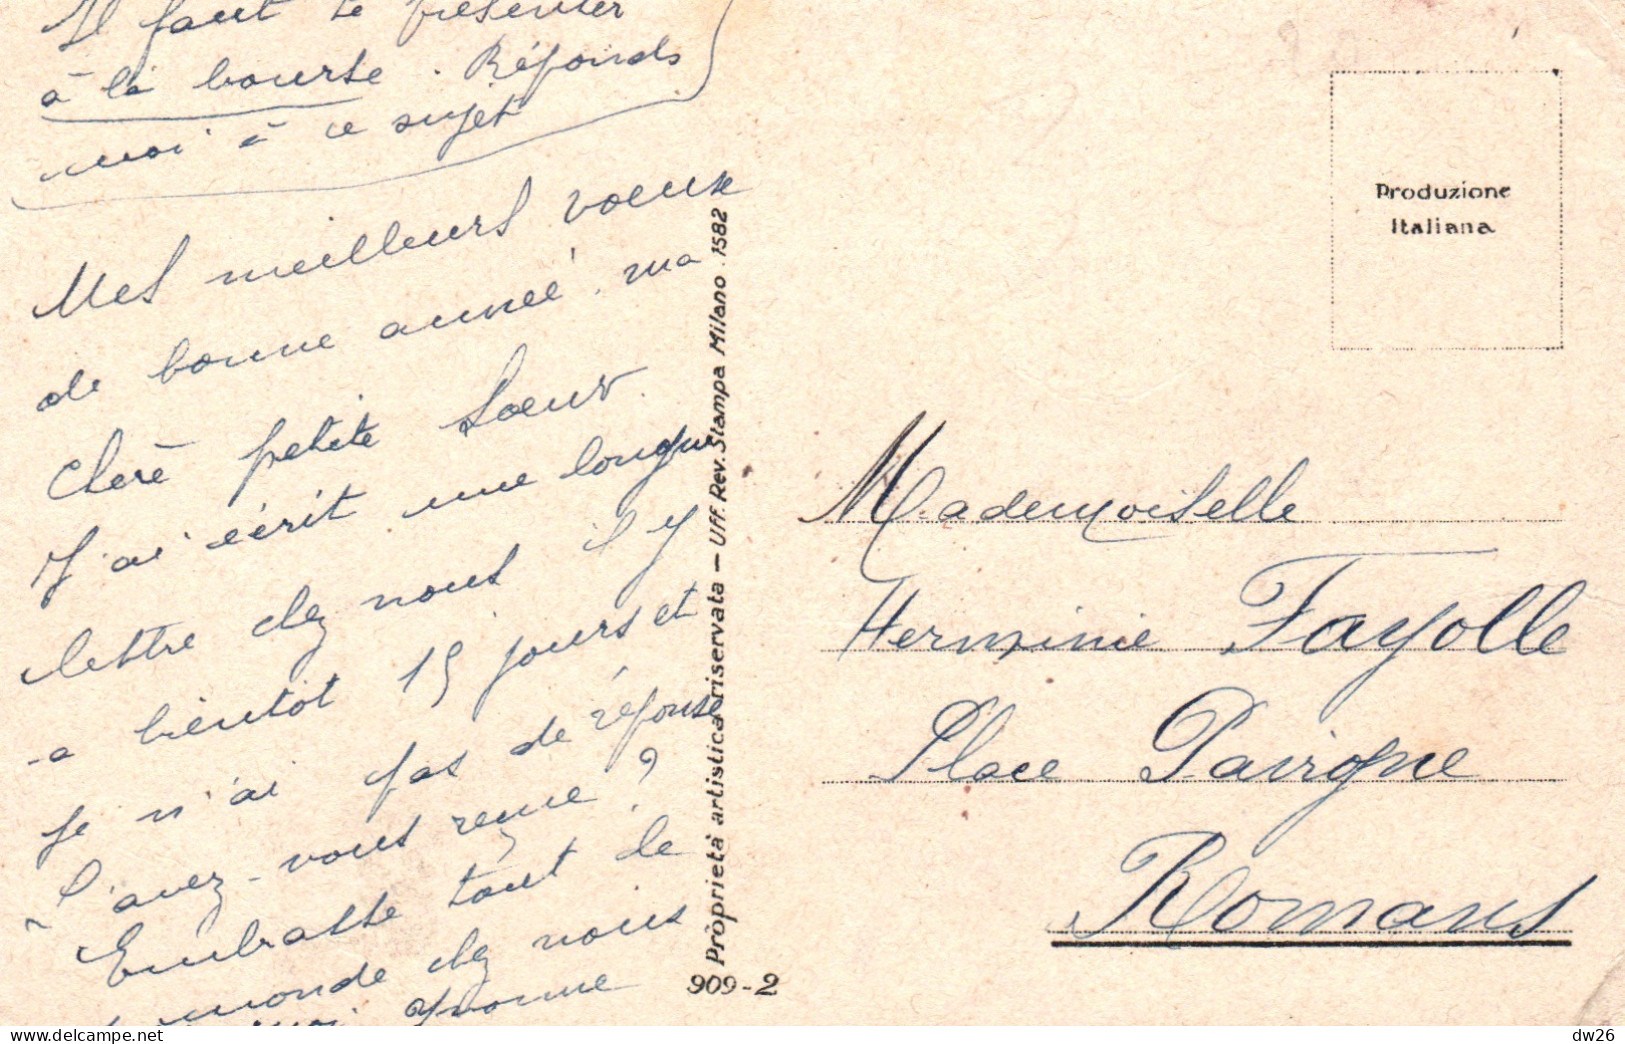 Il faut te présenter
à la bourse. Réponds
moi à ce sujet
Mes meilleurs voeux
de bonne année ma
chère petite Soeur.
J'ai écrit une longue
lettre chez nous il y
a bientôt 15 jours et
je n'ai pas de réponse
l'avez-vous reçue ?
Embrasse tout le
monde chez nous
Yvonne
Proprietà artistica riservata — Uff. Rev. Stampa Milano 1582
909-2
Produzione
Italiana
Mademoiselle
Herminie Fayolle
Place Pavigne
Romans
dw26